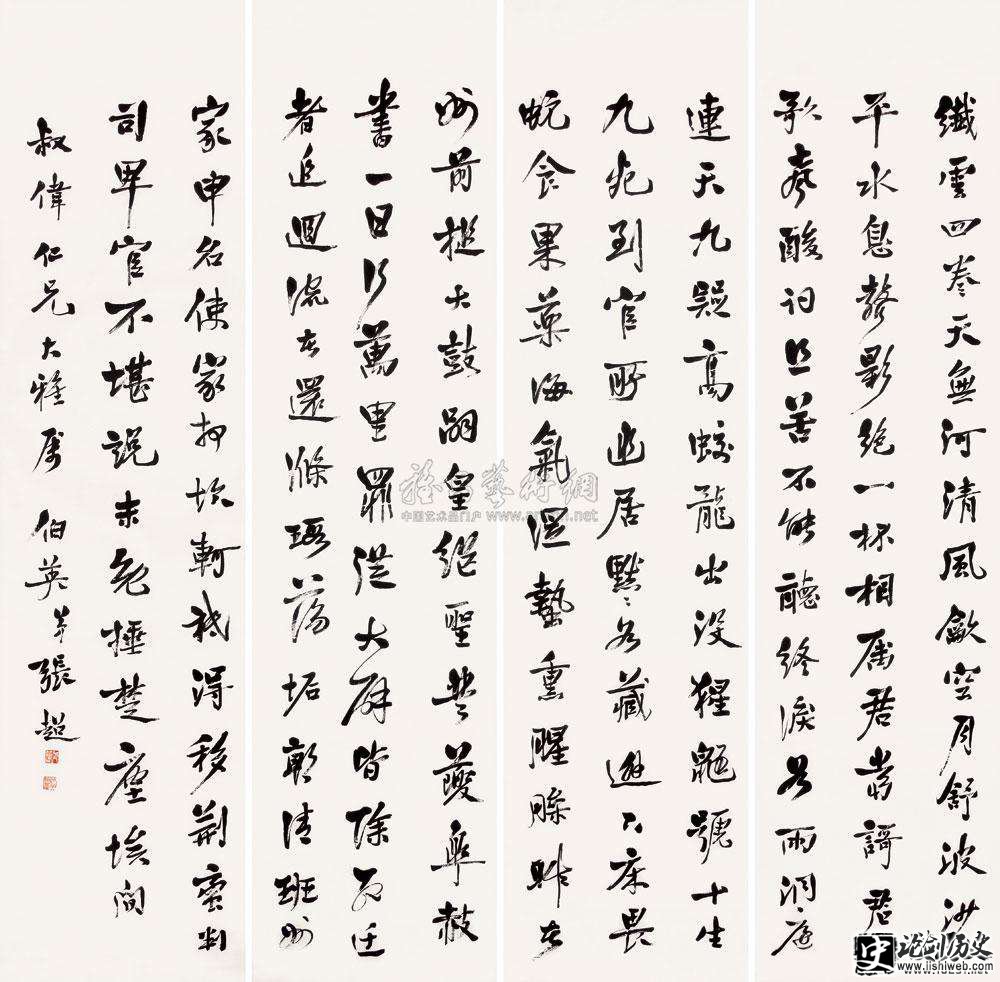 纖雲四卷天無河清風龡空月舒波沙
平水息聲影絕一杯相屬君當謌君
歌聲酸詞且苦不能聽終淚如雨洞庭
連天九疑高蛟龍出沒猩鼯號十生
九死到官所幽居默〻如藏逃下床畏
蛇食果藥海氣濕蟄熏腥臊昨者
州前搥大鼓嗣皇繼聖登夔皋赦
書一日行萬里罪從大辟皆除死遷
者追迴流者還滌瑕蕩垢朝清班州
家申名使家抑坎軻秪得移荊蠻判
司卑官不堪說未免捶楚塵埃間
叔偉仁兄大雅屬 伯英弟張超
中国艺术品门户
史 论剑历史
www.lishiweb.com